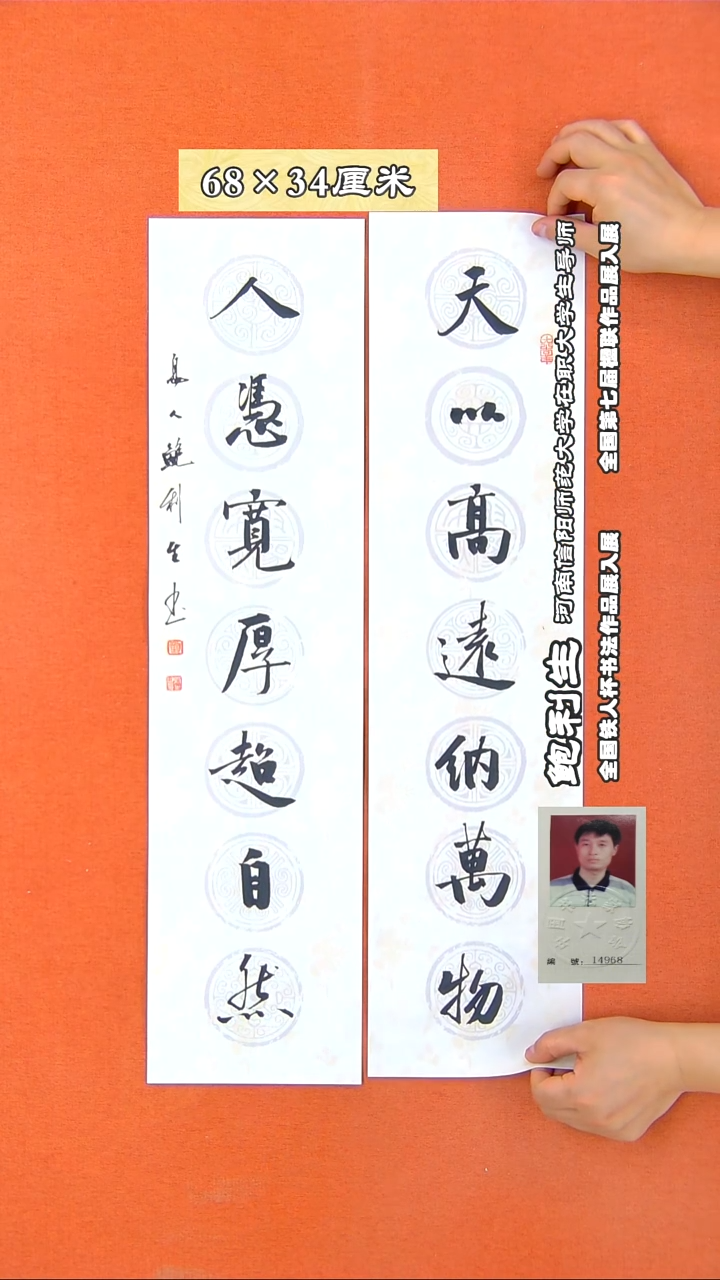 68×34厘米
天以高遠纳萬物
人憑寬厚超自然
息人鲍利生书
鲍利生 河南信阳师范大学在职大学生导师
全国第七届楹联作品展入展
全国铁人杯书法作品展入展
編 號：14968